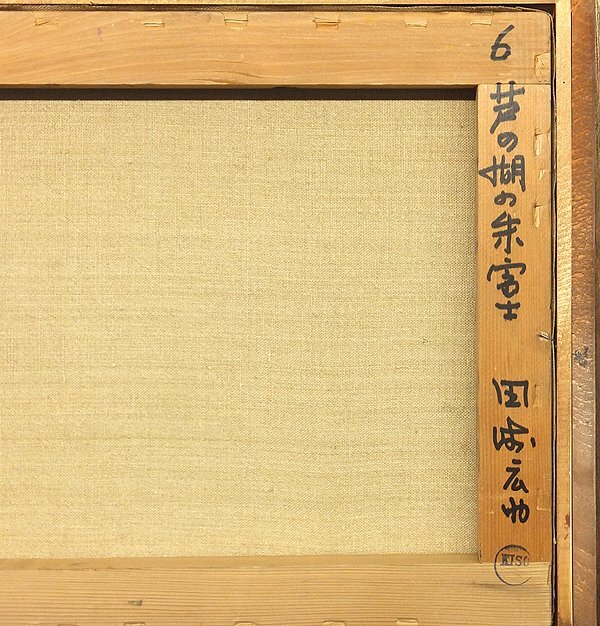 6 芦の湖の朱富士
田崎広助
KISO